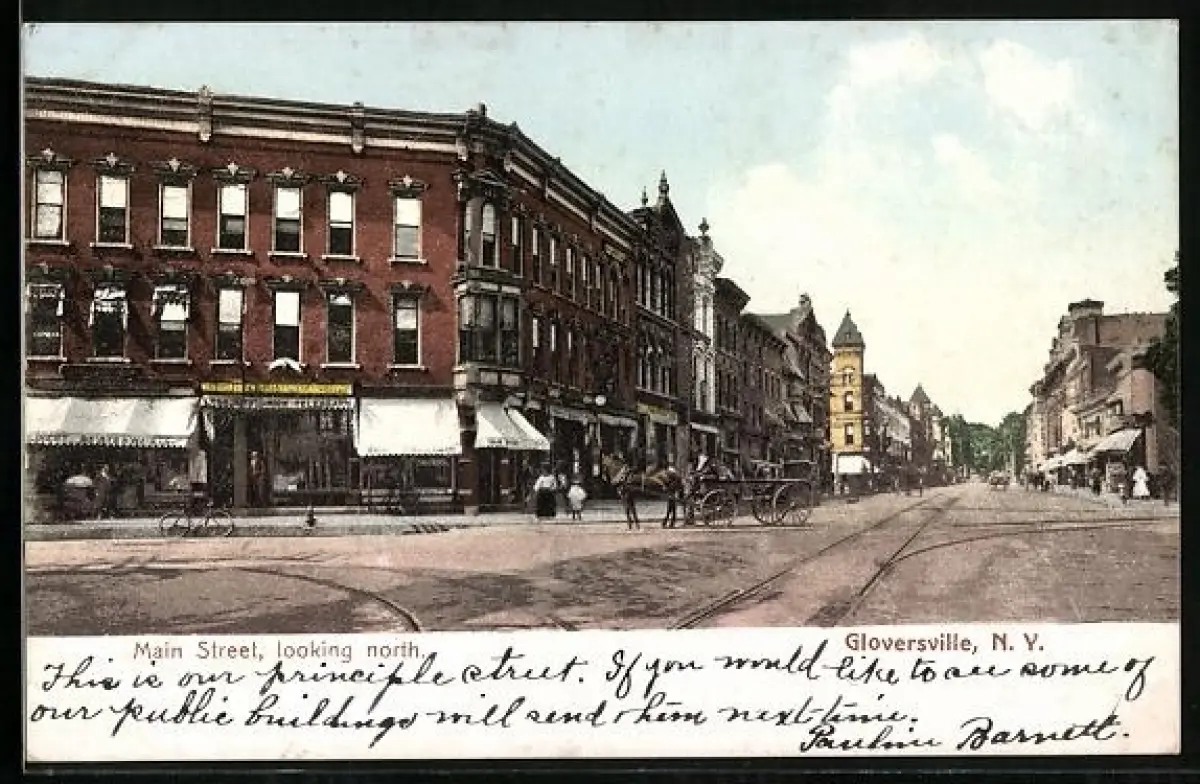 Main Street, looking north.
Gloversville, N. Y.
This is our principle street. If you would like to see some of
our public buildings will send them next time.
Pauline Barnett.